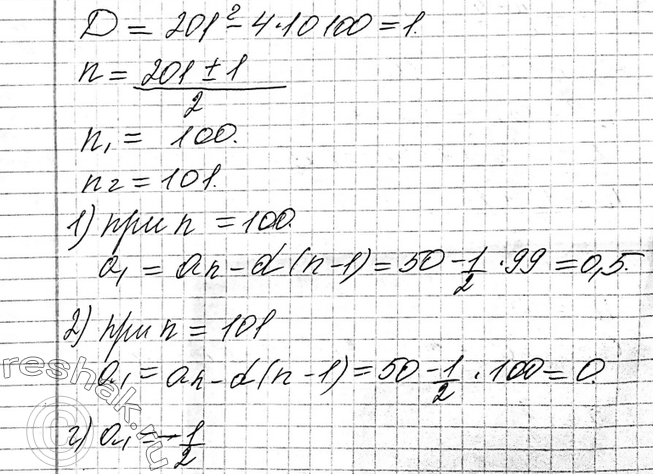 D = 201² - 4·10100 = 1.
n = (201 ± 1)/2
n₁ = 100.
n₂ = 101.
1) при n = 100.
a₁ = an - d(n-1) = 50 - 1/2 · 99 = 0,5.
2) при n = 101
a₁ = an - d(n-1) = 50 - 1/2 · 100 = 0.
г) a₁ = -1/2
reshak.ru